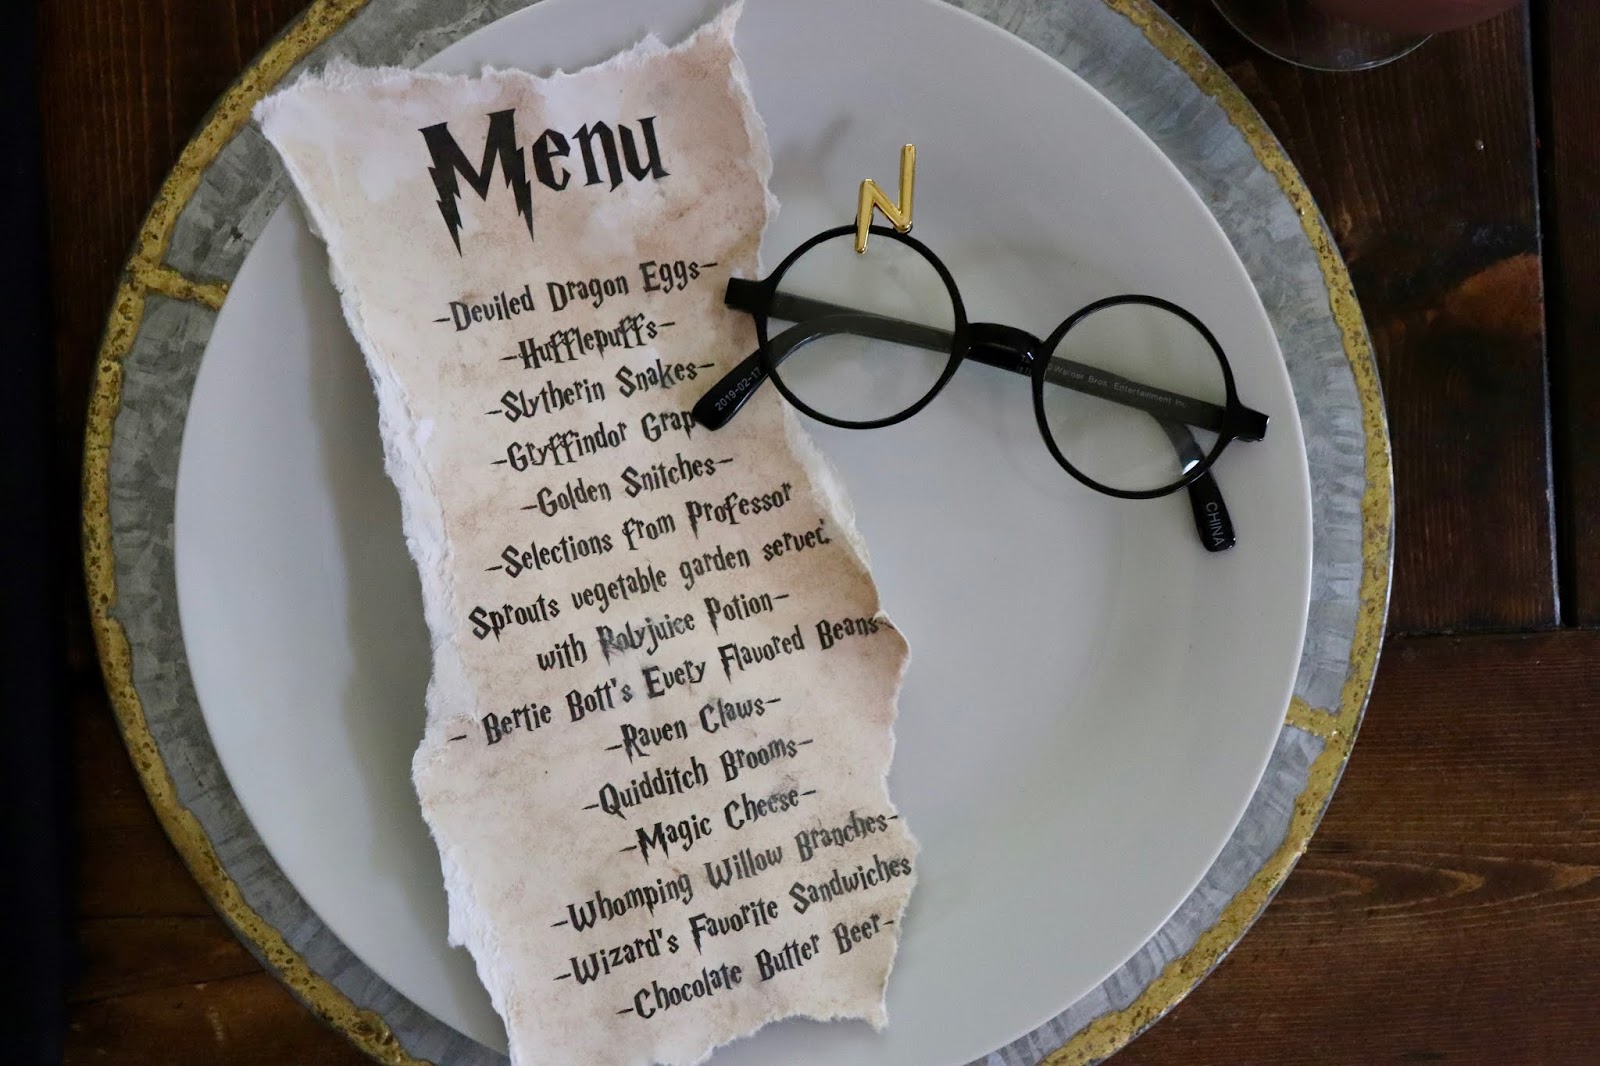 Menu
-Deviled Dragon Eggs-
-Hufflepuffs-
-Slytherin Snakes-
-Gryffindor Grap
-Golden Snitches-
-Selections from Professor
Sprouts vegetable garden served
with Polyjuice Potion-
- Bertie Bott's Every Flavored Beans-
-Raven Claws-
-Quidditch Brooms-
-Magic Cheese-
-Whomping Willow Branches-
-Wizard's Favorite Sandwiches
-Chocolate Butter Beer-
2019-02-17
©Warner Bros. Entertainment Inc.
CHINA